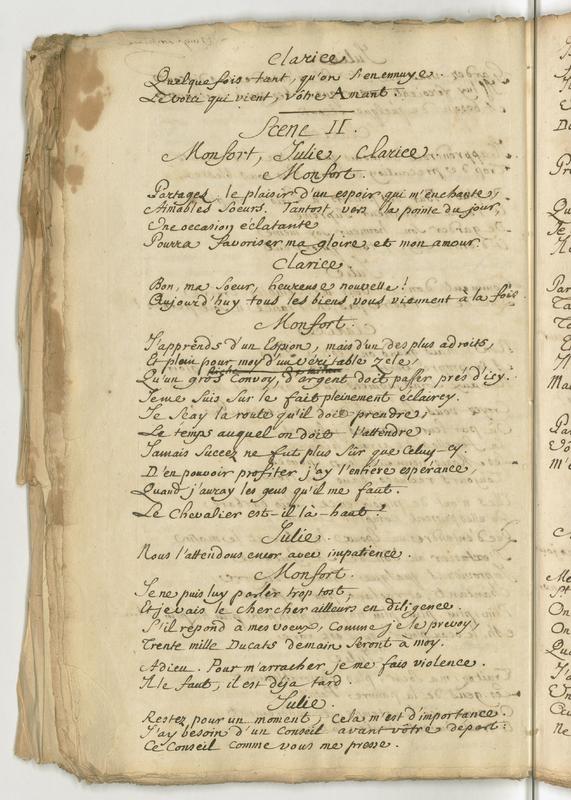 Clarice.
Quelque fois tant, qu'on s'en ennuye.
Le voici qui vient, vôtre Amant.
Scene II.
Monfort, Julie, Clarice
Monfort.
Partagez le plaisir d'un espoir qui m'enchante,
Aimables Soeurs. Tantost, vers la pointe du jour,
Une occasion éclatante
Pourra favoriser ma gloire, et mon amour.
Clarice.
Bon, ma Soeur, heureuse nouvelle!
Aujourd'huy tous les biens vous viennent à la fois.
Monfort.
J'apprends d'un Espion, mais d'un des plus adroits,
Et plein pour moy d'un véritable zele,
Qu'un gros Convoy, d'argent doit passer prés d'icy.
Je me suis sur le fait pleinement éclaircy.
Je sçay la route qu'il doit prendre,
Le temps auquel on doit l'attendre
Jamais succez ne fut plus sûr que Celuy-cy.
D'en pouvoir profiter j'ay l'entiére espérance,
Quand j'auray les gens qu'il me faut.
Le Chevalier est-il là-haut?
Julie.
Nous l'attendons encor avec impatience.
Monfort.
Je ne puis luy parler trop tost,
Et je vais le chercher ailleurs en diligence.
S'il répond à mes voeux, comme je le prevoy,
Trente mille Ducats demain seront à moy.
Adieu. Pour m'arracher je me fais violence.
Il le faut, il est déja tard.
Julie.
Restez pour un moment, cela m'est d'importance.
J'ay besoin d'un Conseil avant vôtre depart.
Ce Conseil comme vous me presse.